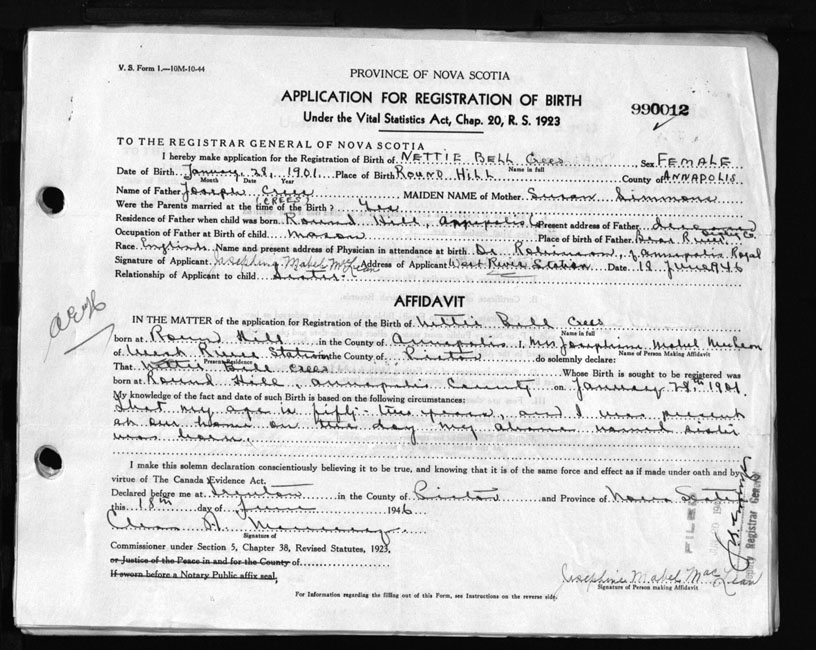 V. S. Form 1.—10M-10-44
PROVINCE OF NOVA SCOTIA
APPLICATION FOR REGISTRATION OF BIRTH
990012
Under the Vital Statistics Act, Chap. 20, R. S. 1923
TO THE REGISTRAR GENERAL OF NOVA SCOTIA
I hereby make application for the Registration of Birth of NETTIE BELL Crees Sex FEMALE
Name in full
Date of Birth January 28, 1901 Place of Birth ROUND HILL County of ANNAPOLIS
Month Date Year
Name of Father Joseph Crees MAIDEN NAME of Mother Susan Simmons
(CREES)
Were the Parents married at the time of the Birth? Yes
Residence of Father when child was born Round Hill, Annapolis Co Present address of Father deceased
Occupation of Father at Birth of child mason Place of birth of Father Bear River, Digby Co.
Race English Name and present address of Physician in attendance at birth Dr Robinson, of Annapolis Royal
Signature of Applicant Josephine Mabel McLean Address of Applicant West River Station Date 18 June 1946
Relationship of Applicant to child Sister
AFFIDAVIT
IN THE MATTER of the application for Registration of the Birth of Nettie Bell Crees
Name in full
born at Round Hill in the County of Annapolis I, Mrs Josephine Mabel McLean
Name of Person Making Affidavit
of West River Station in the County of Pictou do solemnly declare:
Present Residence
That Nettie Bell Crees Whose Birth is sought to be registered was
born at Round Hill, Annapolis County on January 28th 1901.
My knowledge of the fact and date of such Birth is based on the following circumstances:
that my age is fifty-two years, and I was present
at our home on the day my above named sister
was born.
I make this solemn declaration conscientiously believing it to be true, and knowing that it is of the same force and effect as if made under oath and by
virtue of The Canada Evidence Act.
Declared before me at in the County of Pictou and Province of Nova Scotia
this 18th day of June 1946
Signature of
Commissioner under Section 5, Chapter 38, Revised Statutes, 1923,
or Justice of the Peace in and for the County of
If sworn before a Notary Public affix seal,
FILED
Deputy Registrar General
Josephine Mabel MacLean
Signature of Person making Affidavit
For Information regarding the filling out of this Form, see Instructions on the reverse side.